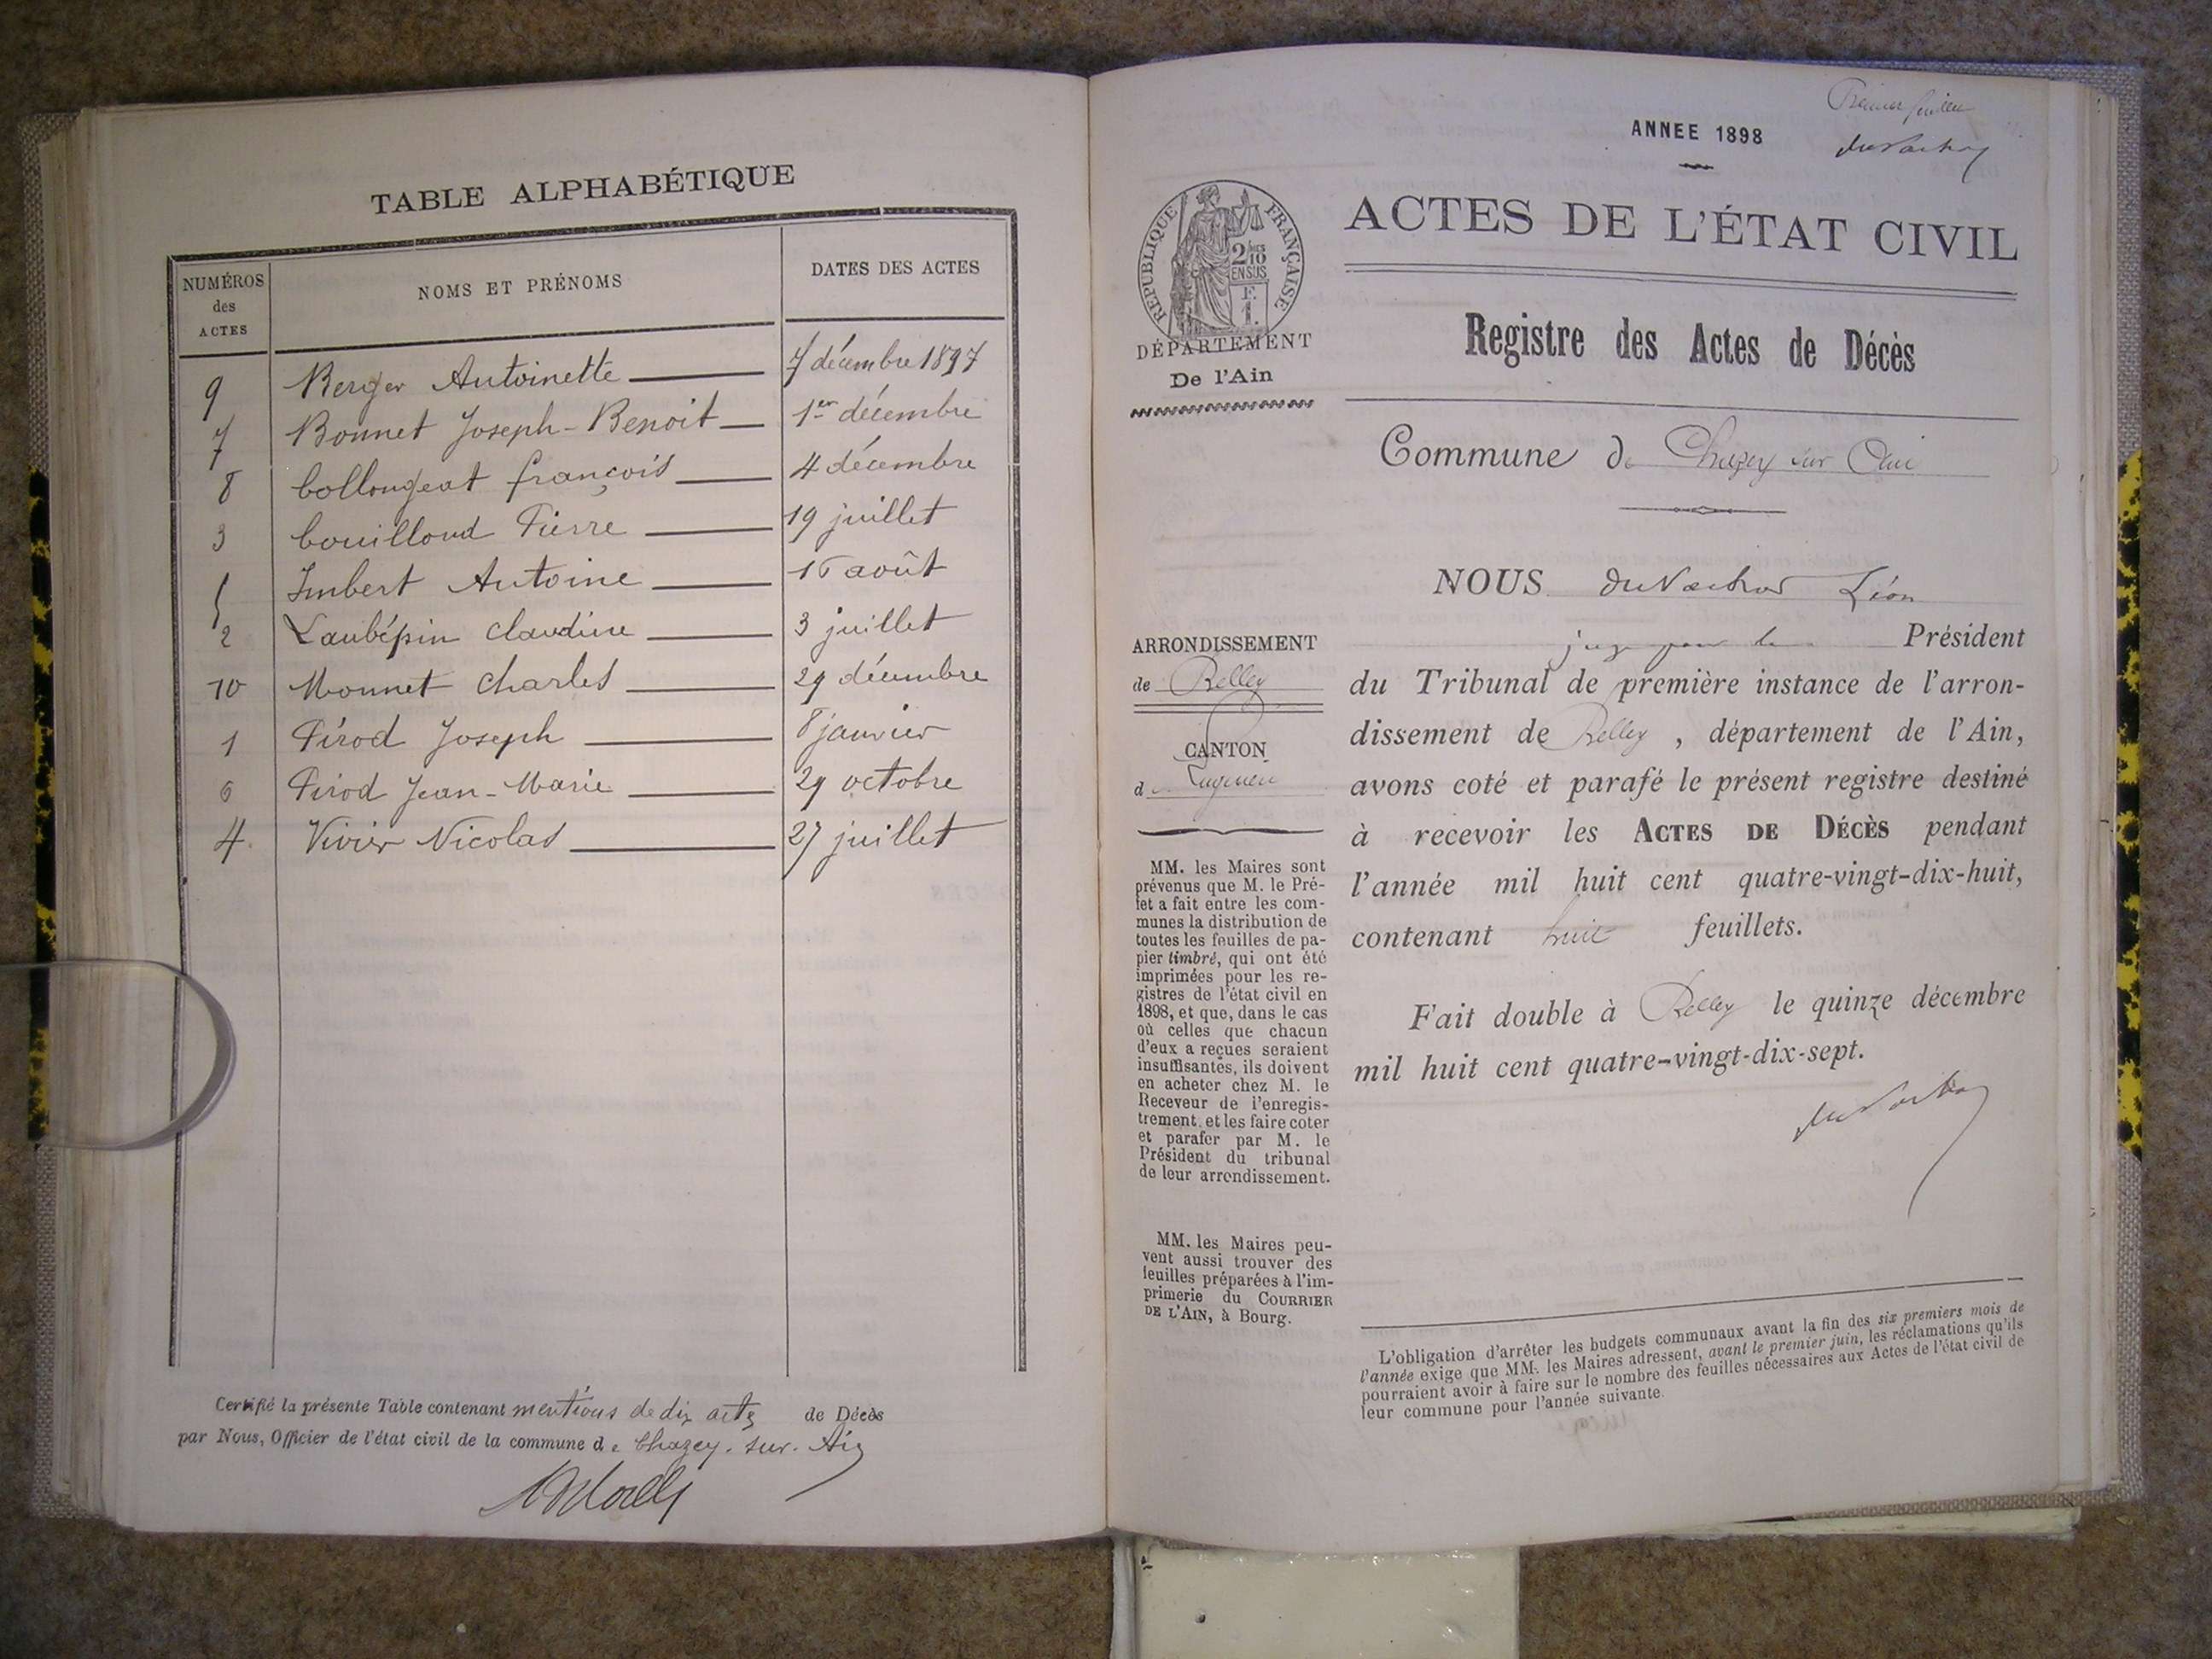 TABLE ALPHABÉTIQUE
NUMÉROS des ACTES NOMS ET PRÉNOMS DATES DES ACTES
9 Berger Antoinette 7 décembre 1897
7 Bonnet Joseph-Benoit 1er décembre
8 Collongeat françois 4 décembre
3 Couilloud Pierre 19 juillet
5 Imbert Antoine 16 août
2 Laubépin Claudine 3 juillet
10 Monnet Charles 29 décembre
1 Pérod Joseph 8 janvier
6 Pérod Jean-Marie 29 octobre
4 Vivier Nicolas 27 juillet
Certifié la présente Table contenant mentions de dix actes de Décès
par Nous, Officier de l'état civil de la commune de Chazey-sur-Ain
Premier feuillet
ANNEE 1898
ACTES DE L'ÉTAT CIVIL
REPUBLIQUE FRANÇAISE
2/10 EN SUS
F. 1.
DÉPARTEMENT
De l'Ain
Registre des Actes de Décès
Commune de Chazey sur Ain
NOUS Léon
juge pour le Président
du Tribunal de première instance de l'arron-
dissement de Belley, département de l'Ain,
avons coté et parafé le présent registre destiné
à recevoir les ACTES DE DÉCÈS pendant
l'année mil huit cent quatre-vingt-dix-huit,
contenant huit feuillets.
Fait double à Belley le quinze décembre
mil huit cent quatre-vingt-dix-sept.
ARRONDISSEMENT
de Belley
CANTON
de Lagnieu
MM. les Maires sont
prévenus que M. le Pré-
fet a fait entre les com-
munes la distribution de
toutes les feuilles de pa-
pier timbré, qui ont été
imprimées pour les re-
gistres de l'état civil en
1898, et que, dans le cas
où celles que chacun
d'eux a reçues seraient
insuffisantes, ils doivent
en acheter chez M. le
Receveur de l'enregis-
trement, et les faire coter
et parafer par M. le
Président du tribunal
de leur arrondissement.
MM. les Maires peu-
vent aussi trouver des
feuilles préparées à l'im-
primerie du COURRIER
DE L'AIN, à Bourg.
L'obligation d'arrêter les budgets communaux avant la fin des six premiers mois de
l'année exige que MM. les Maires adressent, avant le premier juin, les réclamations qu'ils
pourraient avoir à faire sur le nombre des feuilles nécessaires aux Actes de l'état civil de
leur commune pour l'année suivante.